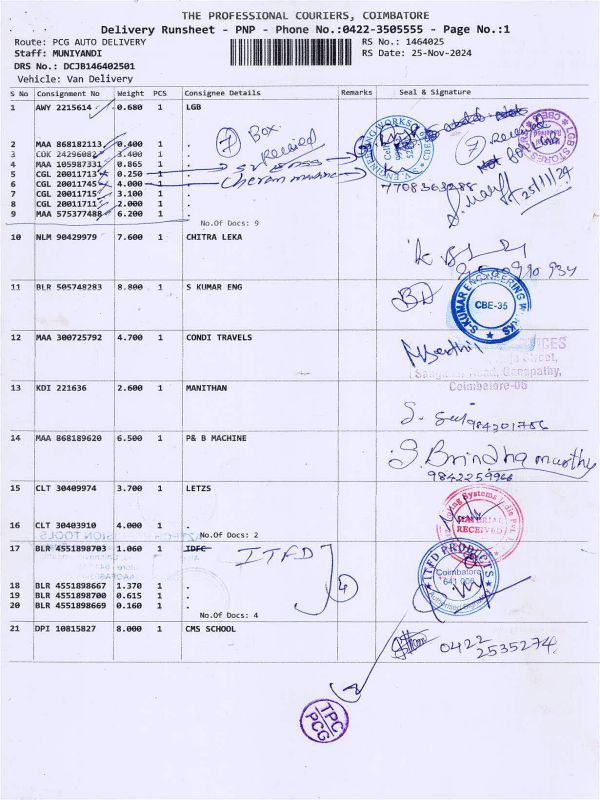 THE PROFESSIONAL COURIERS, COIMBATORE
Delivery Runsheet - PNP - Phone No.:0422-3505555 - Page No.:1
Route: PCG AUTO DELIVERY
Staff: MUNIYANDI
DRS No.: DCJB146402501
Vehicle: Van Delivery
RS No.: 1464025
RS Date: 25-Nov-2024
S No Consignment No Weight PCS Consignee Details Remarks Seal & Signature
1 AWY 2215614 0.680 1 LGB
2 MAA 868182113 0.400 1 .
3 COK 24296082 3.400 1 .
4 MAA 105987331 0.865 1 .
5 CGL 20011713 0.250 1 .
6 CGL 20011745 4.000 1 .
7 CGL 20011715 3.100 1 .
8 CGL 20011711 2.000 1 .
9 MAA 575377488 6.200 1 .
No.Of Docs: 9
7 Box
Received
7708363288
25/11/24
10 NLM 90429979 7.600 1 CHITRA LEKA
11 BLR 505748283 8.800 1 S KUMAR ENG
S.KUMAR ENGINEERING WORKS
CBE-35
12 MAA 300725792 4.700 1 CONDI TRAVELS
Street,
Road, Ganapathy,
Coimbatore-06
13 KDI 221636 2.600 1 MANITHAN
14 MAA 868189620 6.500 1 P& B MACHINE
S. Brindha murthy
9842259966
15 CLT 30409974 3.700 1 LETZS
16 CLT 30403910 4.000 1 .
No.Of Docs: 2
MATERIAL
RECEIVED
17 BLR 4551898703 1.060 1 IDFC ITFD
18 BLR 4551898667 1.370 1 .
19 BLR 4551898700 0.615 1 .
20 BLR 4551898669 0.160 1 .
No.Of Docs: 4
4
ITFD PRODUCTS
Coimbatore
Authorised Signatory
21 DPI 10815827 8.000 1 CMS SCHOOL
0422
2535274
TPC
PCG